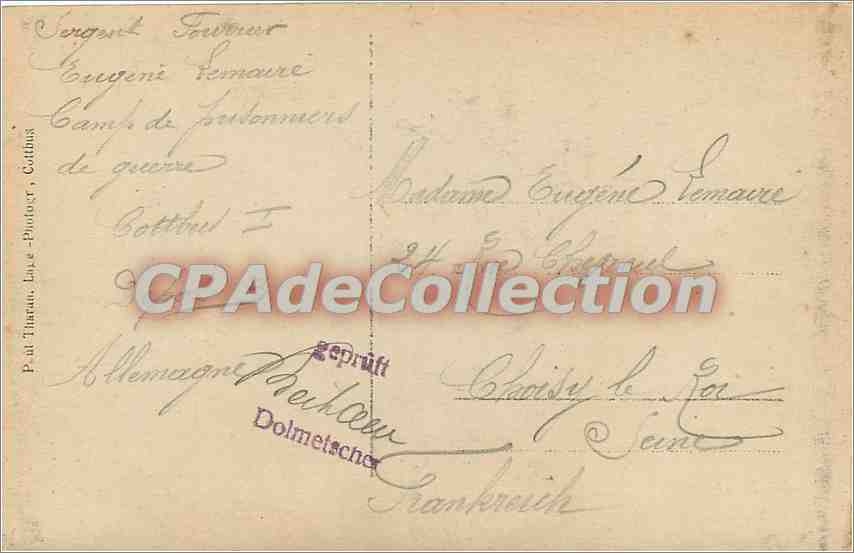 Sergent Fourrier
Eugène Lemaire
Camp de prisonniers
de guerre
Cottbus I
Allemagne
Paul Tharan, Lage-Photogr., Cottbus
Madame Eugène Lemaire
24 Rue
Choisy le Roi
Seine
Frankreich
geprüft
Dolmetscher
CPAdeCollection